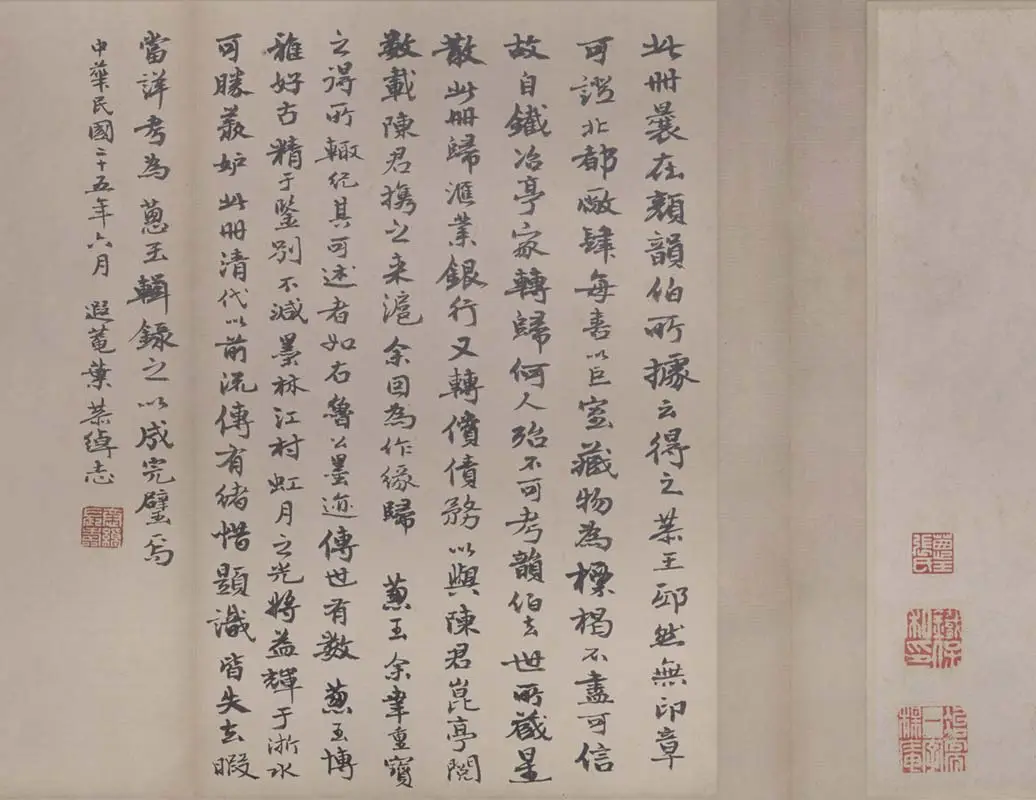 此冊曩在顏韻伯所據云得之某王邸然無印章
可證北都廠肆每喜以巨室藏物為標楬不盡可信
故自鐵冶亭家轉歸何人殆不可考韻伯去世所藏星
散此冊歸滙業銀行又轉償債務以與陳君崑亭閱
數載陳君攜之来滬余因為作緣歸 蔥玉余幸重寶
之得所輒紀其可述者如右魯公墨迹傳世有數蔥玉博
雅好古精于鑒別不減墨林江村虹月之光將益輝于浙水
可勝羨妒此冊清代以前流傳有緒惜題識皆失去暇
當詳考為蔥玉輯錄之以成完璧焉
中華民國二十五年六月 遐菴葉恭綽志
蔥玉張氏
鐵保私印